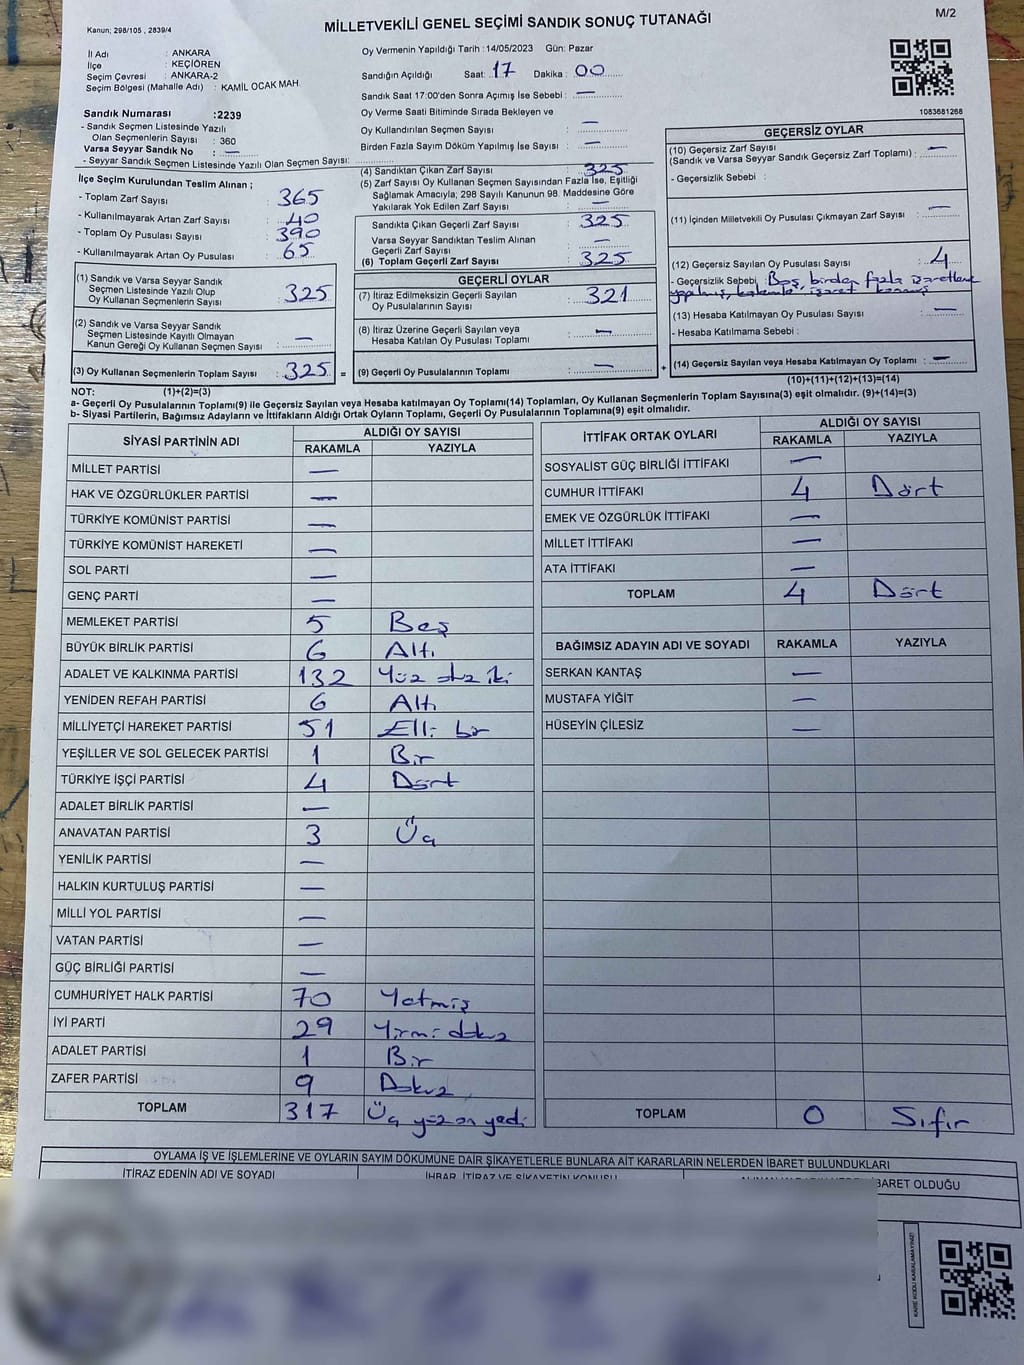 M/2
MİLLETVEKİLİ GENEL SEÇİMİ SANDIK SONUÇ TUTANAĞI
Kanun; 298/105 , 2839/4
İl Adı : ANKARA
İlçe : KEÇİÖREN
Seçim Çevresi : ANKARA-2
Seçim Bölgesi (Mahalle Adı) : KAMİL OCAK MAH
Oy Vermenin Yapıldığı Tarih :14/05/2023 Gün: Pazar
Sandığın Açıldığı Saat: 17 Dakika : 00
Sandık Saat 17:00'den Sonra Açımış İse Sebebi : —
Oy Verme Saati Bitiminde Sırada Bekleyen ve
Oy Kullandırılan Seçmen Sayısı : —
Birden Fazla Sayım Döküm Yapılmış İse Sayısı : —
1083681268
Sandık Numarası :2239
- Sandık Seçmen Listesinde Yazılı
Olan Seçmenlerin Sayısı : 360
Varsa Seyyar Sandık No : —
- Seyyar Sandık Seçmen Listesinde Yazılı Olan Seçmen Sayısı:
İlçe Seçim Kurulundan Teslim Alınan ;
- Toplam Zarf Sayısı : 365
- Kullanılmayarak Artan Zarf Sayısı : 40
- Toplam Oy Pusulası Sayısı : 390
- Kullanılmayarak Artan Oy Pusulası : 65
(1) Sandık ve Varsa Seyyar Sandık
Seçmen Listesinde Yazılı Olup
Oy Kullanan Seçmenlerin Sayısı : 325
(2) Sandık ve Varsa Seyyar Sandık
Seçmen Listesinde Kayıtlı Olmayan
Kanun Gereği Oy Kullanan Seçmenlerin Sayısı : —
(3) Oy Kullanan Seçmenlerin Toplam Sayısı : 325 =
(1)+(2)=(3)
(4) Sandıktan Çıkan Zarf Sayısı : 325
(5) Zarf Sayısı Oy Kullanan Seçmen Sayısından Fazla İse, Eşitliği
Sağlamak Amacıyla; 298 Sayılı Kanunun 98. Maddesine Göre
Yakılarak Yok Edilen Zarf Sayısı : —
Sandıkta Çıkan Geçerli Zarf Sayısı : 325
Varsa Seyyar Sandıktan Teslim Alınan
Geçerli Zarf Sayısı : —
(6) Toplam Geçerli Zarf Sayısı : 325
GEÇERLİ OYLAR
(7) İtiraz Edilmeksizin Geçerli Sayılan
Oy Pusulalarının Sayısı : 321
(8) İtiraz Üzerine Geçerli Sayılan veya
Hesaba Katılan Oy Pusulası Toplamı : —
(9) Geçerli Oy Pusulalarının Toplamı : — +
GEÇERSİZ OYLAR
(10) Geçersiz Zarf Sayısı
(Sandık ve Varsa Seyyar Sandık Geçersiz Zarf Toplamı) : —
- Geçersizlik Sebebi :
(11) İçinden Milletvekili Oy Pusulası Çıkmayan Zarf Sayısı : —
(12) Geçersiz Sayılan Oy Pusulası Sayısı : 4
- Geçersizlik Sebebi : Boş, birden fazla işaretleme
yapılmış, kalemle işaret konmuş
(13) Hesaba Katılmayan Oy Pusulası Sayısı : —
- Hesaba Katılmama Sebebi :
(14) Geçersiz Sayılan veya Hesaba Katılmayan Oy Toplamı : —
(10)+(11)+(12)+(13)=(14)
NOT:
a- Geçerli Oy Pusulalarının Toplamı(9) ile Geçersiz Sayılan veya Hesaba katılmayan Oy Toplamı(14) Toplamları, Oy Kullanan Seçmenlerin Toplam Sayısına(3) eşit olmalıdır. (9)+(14)=(3)
b- Siyasi Partilerin, Bağımsız Adayların ve İttifakların Aldığı Ortak Oyların Toplamı, Geçerli Oy Pusulalarının Toplamına(9) eşit olmalıdır.
SİYASİ PARTİNİN ADI ALDIĞI OY SAYISI
RAKAMLA YAZIYLA
MİLLET PARTİSİ —
HAK VE ÖZGÜRLÜKLER PARTİSİ —
TÜRKİYE KOMÜNİST PARTİSİ —
TÜRKİYE KOMÜNİST HAREKETİ —
SOL PARTİ —
GENÇ PARTİ —
MEMLEKET PARTİSİ 5 Beş
BÜYÜK BİRLİK PARTİSİ 6 Altı
ADALET VE KALKINMA PARTİSİ 132 Yüz otuz iki
YENİDEN REFAH PARTİSİ 6 Altı
MİLLİYETÇİ HAREKET PARTİSİ 51 Elli bir
YEŞİLLER VE SOL GELECEK PARTİSİ 1 Bir
TÜRKİYE İŞÇİ PARTİSİ 4 Dört
ADALET BİRLİK PARTİSİ —
ANAVATAN PARTİSİ 3 Üç
YENİLİK PARTİSİ —
HALKIN KURTULUŞ PARTİSİ —
MİLLİ YOL PARTİSİ —
VATAN PARTİSİ —
GÜÇ BİRLİĞİ PARTİSİ —
CUMHURİYET HALK PARTİSİ 70 Yetmiş
İYİ PARTİ 29 Yirmi dokuz
ADALET PARTİSİ 1 Bir
ZAFER PARTİSİ 9 Dokuz
TOPLAM 317 Üç yüz on yedi
İTTİFAK ORTAK OYLARI ALDIĞI OY SAYISI
RAKAMLA YAZIYLA
SOSYALİST GÜÇ BİRLİĞİ İTTİFAKI —
CUMHUR İTTİFAKI 4 Dört
EMEK VE ÖZGÜRLÜK İTTİFAKI —
MİLLET İTTİFAKI —
ATA İTTİFAKI —
TOPLAM 4 Dört
BAĞIMSIZ ADAYIN ADI VE SOYADI RAKAMLA YAZIYLA
SERKAN KANTAŞ —
MUSTAFA YİĞİT —
HÜSEYİN ÇİLESİZ —
TOPLAM 0 Sıfır
OYLAMA İŞ VE İŞLEMLERİNE VE OYLARIN SAYIM DÖKÜMÜNE DAİR ŞİKAYETLERLE BUNLARA AİT KARARLARIN NELERDEN İBARET BULUNDUKLARI
İTİRAZ EDENİN ADI VE SOYADI İHBAR, İTİRAZ VE ŞİKAYETİN KONUSU İBARET OLDUĞU
KARE KODU KARALAMAYINIZ!